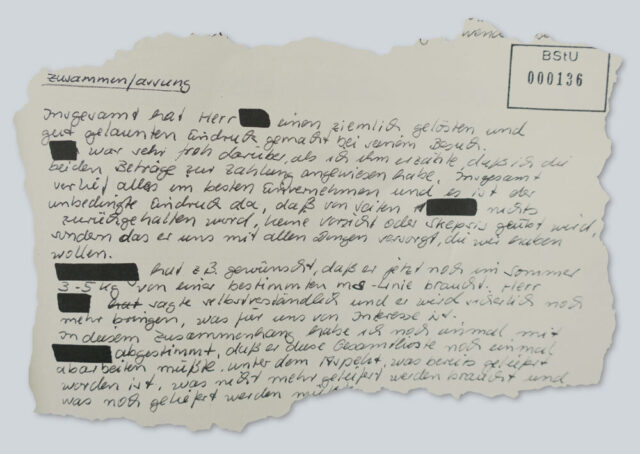 BStU
000136
Zusammenfassung
Insgesamt hat Herr einen ziemlich gelösten und
gut gelaunten Eindruck gemacht bei seinem Besuch.
war sehr froh darüber, als ich ihm erzälte, daß ich die
beiden Beträge zur Zahlung angewiesen habe. Insgesamt
verlief alles im besten Einvernehmen und es ist der
unbedingte Eindruck da, daß von Seiten nichts
zurückgehalten wird, keine Vorsicht oder Skepsis geübt wird,
sondern das er uns mit allen Dingen versorgt, die wir haben
wollen.
hat z.B. gewünscht, daß er jetzt noch im Sommer
3-5 kg von einer bestimmten ms-Linie braucht. Herr
hat sagte selbstverständlich und er wird sicherlich noch
mehr bringen, was für uns von Interesse ist.
In diesem Zusammenhang habe ich noch einmal mit
abgestimmt, daß er diese Gesamtliste noch einmal
abarbeiten müßte unter dem Aspekt, was bereits geliefert
worden ist, was nicht mehr geliefert werden braucht und
was noch geliefert werden